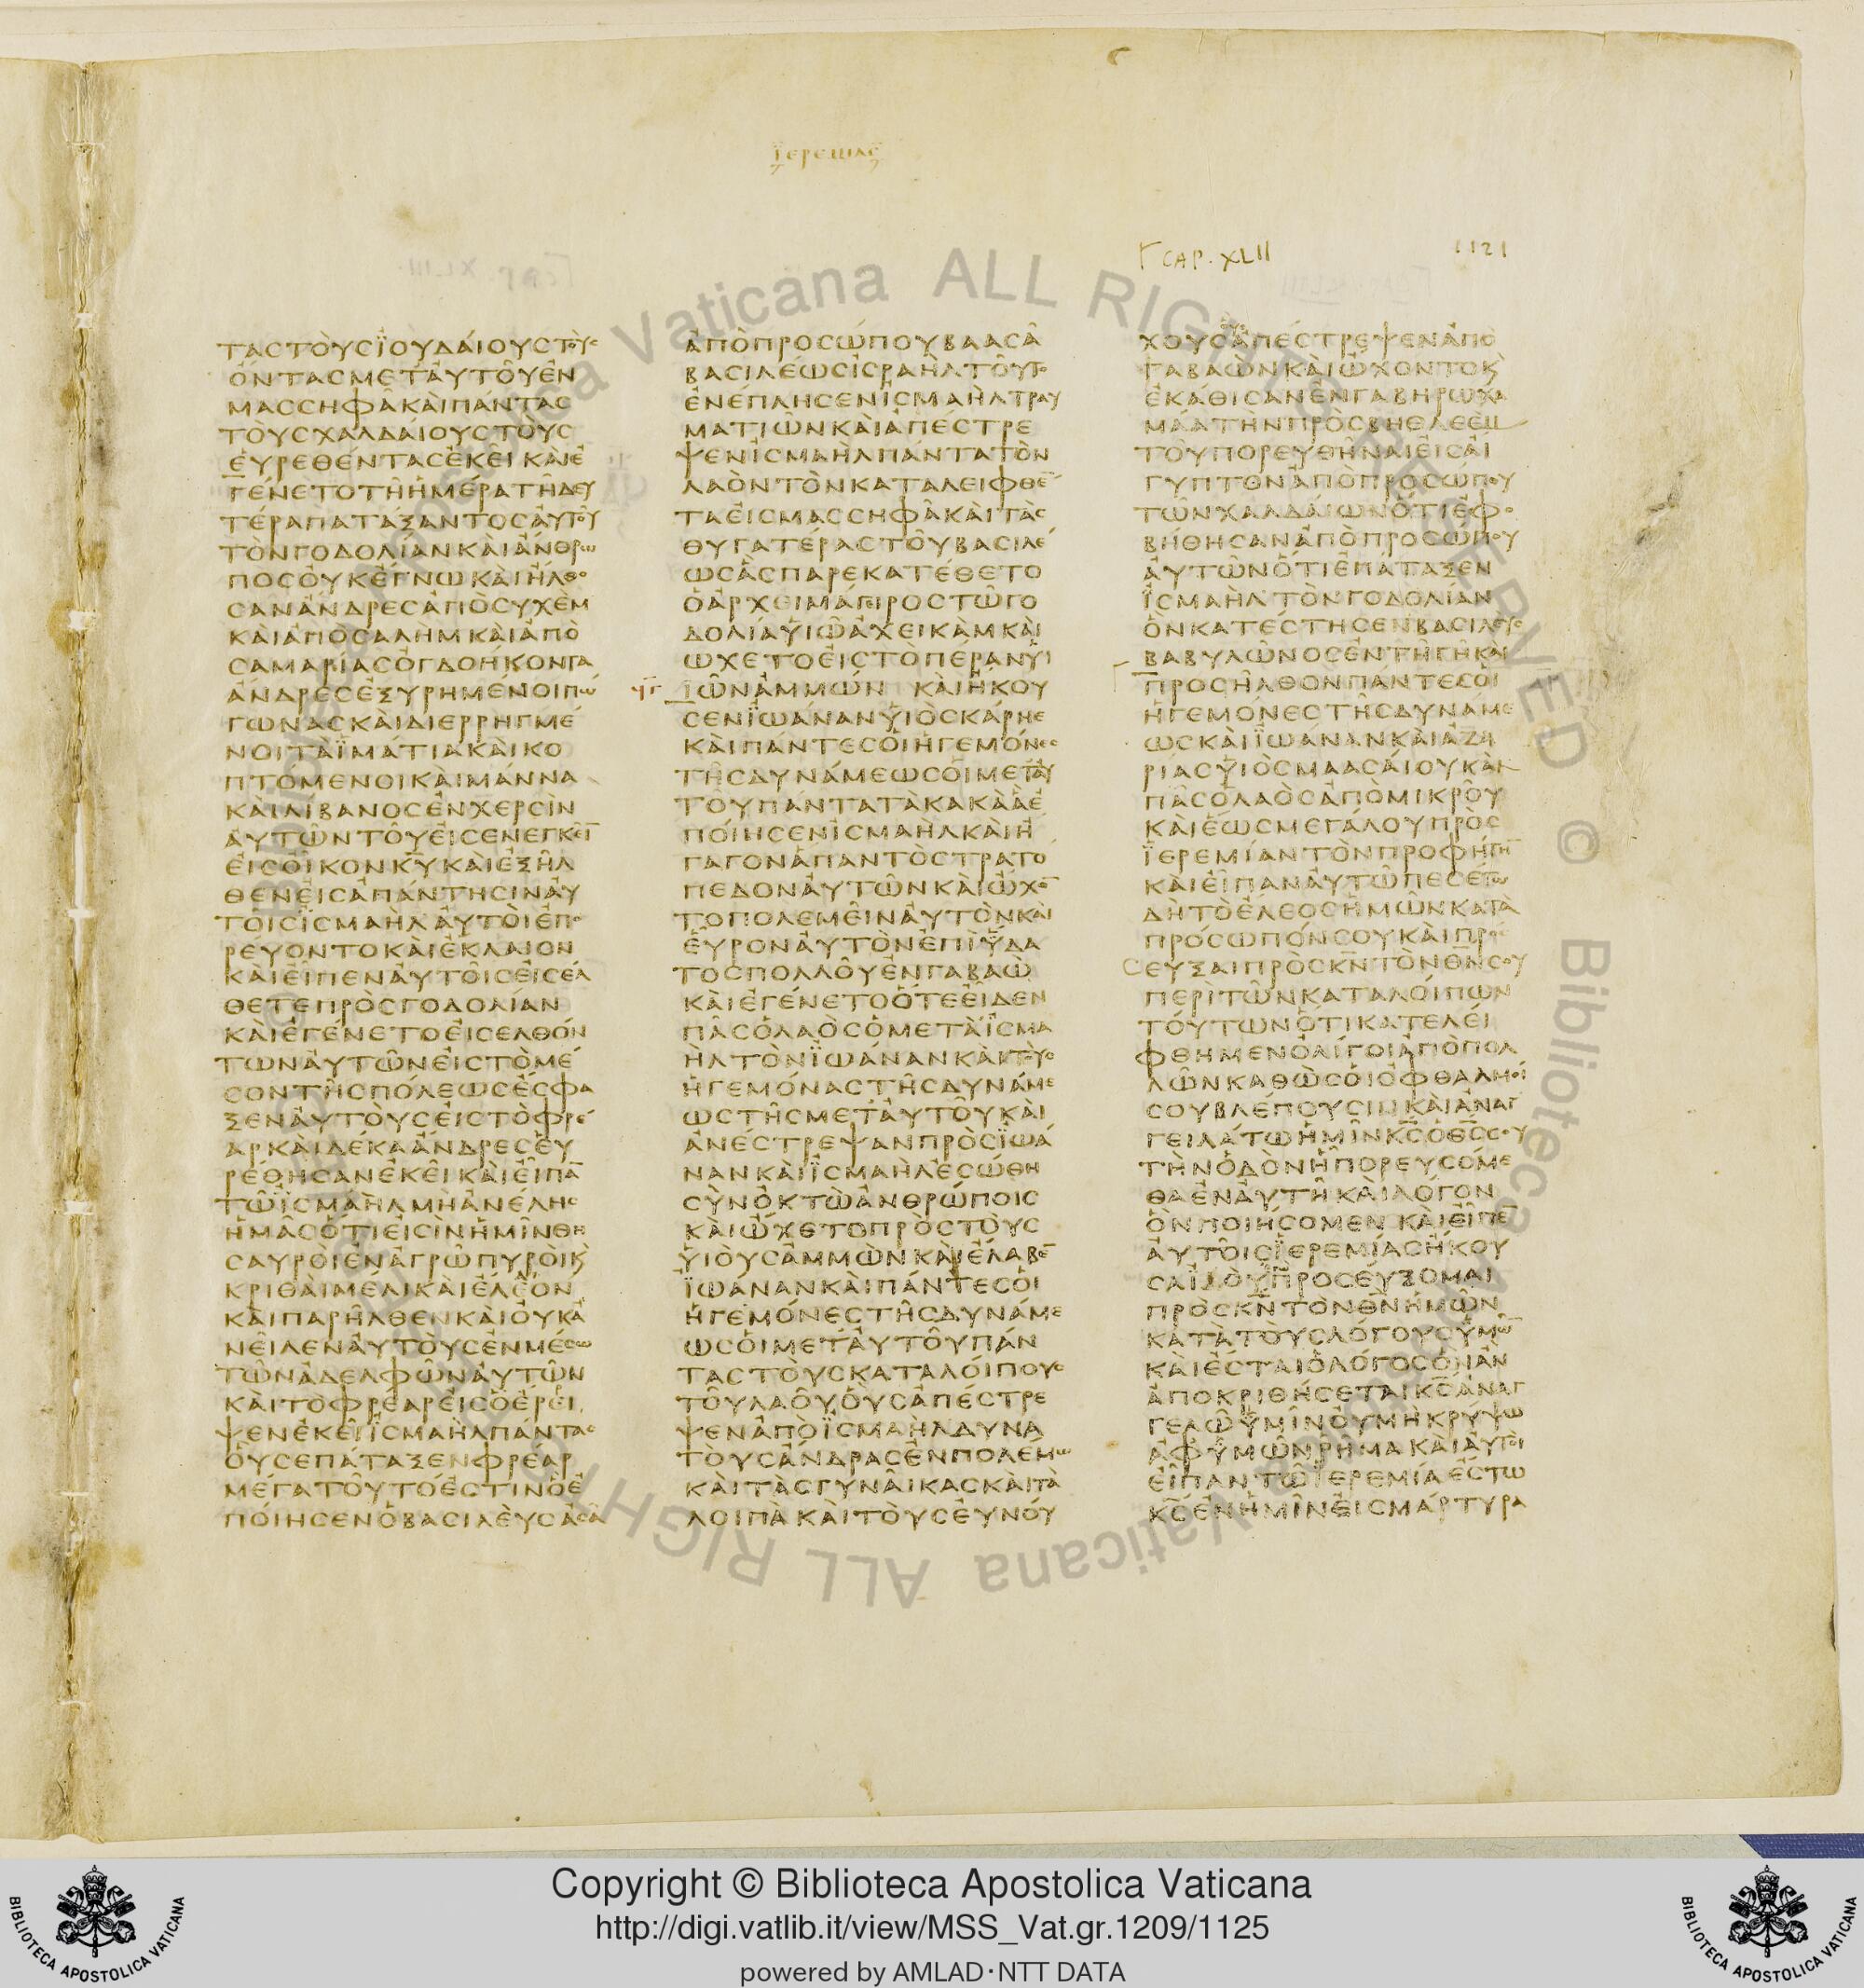 ϊερεμιας
Γ CAP. XLII
1121
ΤΑΣΤΟΥΣΪΟΥΔΑΙΟΥΣΤΟΥΣ
ΟΝΤΑΣΜΕΤΑΥΤΟΥΕΝ
ΜΑΣΣΗΦΑΚΑΙΠΑΝΤΑΣ
ΤΟΥΣΧΑΛΔΑΙΟΥΣΤΟΥΣ
ΕΥΡΕΘΕΝΤΑΣΕΚΕΙΚΑΙΕ
ΓΕΝΕΤΟΤΗΗΜΕΡΑΤΗΔΕΥ
ΤΕΡΑΠΑΤΑΞΑΝΤΟΣΑΥΤΟΥ
ΤΟΝΓΟΔΟΛΙΑΝΚΑΙΑΝΘΡΩ
ΠΟΣΟΥΚΕΓΝΩΚΑΙΗΛΘΟ
ΣΑΝΑΝΔΡΕΣΑΠΟΣΥΧΕΜ
ΚΑΙΑΠΟΣΑΛΗΜΚΑΙΑΠΟ
ΣΑΜΑΡΙΑΣΟΓΔΟΗΚΟΝΤΑ
ΑΝΔΡΕΣΕΞΥΡΗΜΕΝΟΙΠΩ
ΓΩΝΑΣΚΑΙΔΙΕΡΡΗΓΜΕ
ΝΟΙΤΑΪΜΑΤΙΑΚΑΙΚΟ
ΠΤΟΜΕΝΟΙΚΑΙΜΑΝΝΑ
ΚΑΙΛΙΒΑΝΟΣΕΝΧΕΡΣΙΝ
ΑΥΤΩΝΤΟΥΕΙΣΕΝΕΓΚΕΙ̅
ΕΙΣΟΙΚΟΝΚ̅Υ̅ΚΑΙΕΞΗΛ
ΘΕΝΕΙΣΑΠΑΝΤΗΣΙΝΑΥ
ΤΟΙΣΪΣΜΑΗΛΑΥΤΟΙΕΠΟ
ΡΕΥΟΝΤΟΚΑΙΕΚΛΑΙΟΝ
ΚΑΙΕΙΠΕΝΑΥΤΟΙΣΕΙΣΕΛ
ΘΕΤΕΠΡΟΣΓΟΔΟΛΙΑΝ
ΚΑΙΕΓΕΝΕΤΟΕΙΣΕΛΘΟΝ
ΤΩΝΑΥΤΩΝΕΙΣΤΟΜΕ
ΣΟΝΤΗΣΠΟΛΕΩΣΕΣΦΑ
ΞΕΝΑΥΤΟΥΣΕΙΣΤΟΦΡΕ
ΑΡΚΑΙΔΕΚΑΑΝΔΡΕΣΕΥ
ΡΕΘΗΣΑΝΕΚΕΙΚΑΙΕΙΠΑ̅
ΤΩΪΣΜΑΗΛΜΗΑΝΕΛΗΣ
ΗΜΑΣΟΤΙΕΙΣΙΝΗΜΙΝΘΗ
ΣΑΥΡΟΙΕΝΑΓΡΩΠΥΡΟΙΚ
ΚΡΙΘΑΙΜΕΛΙΚΑΙΕΛΕΟΝ
ΚΑΙΠΑΡΗΛΘΕΝΚΑΙΟΥΚΑ
ΝΕΙΛΕΝΑΥΤΟΥΣΕΝΜΕΣΩ
ΤΩΝΑΔΕΛΦΩΝΑΥΤΩΝ
ΚΑΙΤΟΦΡΕΑΡΕΙΣΟΕΡΕΙ
ΨΕΝΕΚΕΙΪΣΜΑΗΛΠΑΝΤΑΣ
ΟΥΣΕΠΑΤΑΞΕΝΦΡΕΑΡ
ΜΕΓΑΤΟΥΤΟΕΣΤΙΝΟΕ
ΠΟΙΗΣΕΝΟΒΑΣΙΛΕΥΣΑΣΑ
ΑΠΟΠΡΟΣΩΠΟΥΒΑΑΣΑ
ΒΑΣΙΛΕΩΣΙΣΡΑΗΛΤΟΥΤΟ
ΕΝΕΠΛΗΣΕΝΪΣΜΑΗΛΤΡΑΥ
ΜΑΤΙΩΝΚΑΙΑΠΕΣΤΡΕ
ΨΕΝΪΣΜΑΗΛΠΑΝΤΑΤΟΝ
ΛΑΟΝΤΟΝΚΑΤΑΛΕΙΦΘΕ̅
ΤΑΕΙΣΜΑΣΣΗΦΑΚΑΙΤΑΣ
ΘΥΓΑΤΕΡΑΣΤΟΥΒΑΣΙΛΕ
ΩΣΑΣΠΑΡΕΚΑΤΕΘΕΤΟ
ΟΑΡΧΙΜΑΓΕΙΡΟΣΤΩΓΟ
ΔΟΛΙΑΫΙΩΑΧΕΙΚΑΜΚΑΙ
ΩΧΕΤΟΕΙΣΤΟΠΕΡΑΝΫΙ
ΙΩΝΑΜΜΩΝ ΚΑΙΗΚΟΥ
ΣΕΝΪΩΑΝΑΝΫΙΟΣΚΑΡΗΕ
ΚΑΙΠΑΝΤΕΣΟΙΗΓΕΜΟΝΕΣ
ΤΗΣΔΥΝΑΜΕΩΣΟΙΜΕΤΑΥ
ΤΟΥΠΑΝΤΑΤΑΚΑΚΑΑΕ
ΠΟΙΗΣΕΝΪΣΜΑΗΛΚΑΙΗ
ΓΑΓΟΝΑΠΑΝΤΟΣΤΡΑΤΟ
ΠΕΔΟΝΑΥΤΩΝΚΑΙΩΧΟ̅
ΤΟΠΟΛΕΜΕΙΝΑΥΤΟΝΚΑΙ
ΕΥΡΟΝΑΥΤΟΝΕΠΙΫΔΑ
ΤΟΣΠΟΛΛΟΥΕΝΓΑΒΑΩ
ΚΑΙΕΓΕΝΕΤΟΟΤΕΕΙΔΕΝ
ΠΑΣΟΛΑΟΣΟΜΕΤΑΪΣΜΑ
ΗΛΤΟΝΪΩΑΝΑΝΚΑΙΤΟΥΣ
ΗΓΕΜΟΝΑΣΤΗΣΔΥΝΑΜΕ
ΩΣΤΗΣΜΕΤΑΥΤΟΥΚΑΙ
ΑΝΕΣΤΡΕΨΑΝΠΡΟΣΪΩΑ
ΝΑΝΚΑΙΪΣΜΑΗΛΕΣΩΘΗ
ΣΥΝΟΚΤΩΑΝΘΡΩΠΟΙΣ
ΚΑΙΩΧΕΤΟΠΡΟΣΤΟΥΣ
ΫΙΟΥΣΑΜΜΩΝΚΑΙΕΛΑΒΕ̅
ΪΩΑΝΑΝΚΑΙΠΑΝΤΕΣΟΙ
ΗΓΕΜΟΝΕΣΤΗΣΔΥΝΑΜΕ
ΩΣΟΙΜΕΤΑΥΤΟΥΠΑΝ
ΤΑΣΤΟΥΣΚΑΤΑΛΟΙΠΟΥΣ
ΤΟΥΛΑΟΥΟΥΣΑΠΕΣΤΡΕ
ΨΕΝΑΠΟΪΣΜΑΗΛΔΥΝΑ
ΤΟΥΣΑΝΔΡΑΣΕΝΠΟΛΕΜΩ
ΚΑΙΤΑΣΓΥΝΑΙΚΑΣΚΑΙΤΑ
ΛΟΙΠΑΚΑΙΤΟΥΣΕΥΝΟΥ
ΧΟΥΣΟΥΣΑΠΕΣΤΡΕΨΕΝΑΠΟ
ΓΑΒΑΩΝΚΑΙΩΧΟΝΤΟΚ
ΕΚΑΘΙΣΑΝΕΝΓΑΒΗΡΩΧΑ
ΜΑΑΤΗΝΠΡΟΣΒΗΕΛΕΕΜ
ΤΟΥΠΟΡΕΥΘΗΝΑΙΕΙΣΑΙ
ΓΥΠΤΟΝΑΠΟΠΡΟΣΩΠΟΥ
ΤΩΝΧΑΛΔΑΙΩΝΟΤΙΕΦΟ
ΒΗΘΗΣΑΝΑΠΟΠΡΟΣΩΠΟΥ
ΑΥΤΩΝΟΤΙΕΠΑΤΑΞΕΝ
ΪΣΜΑΗΛΤΟΝΓΟΔΟΛΙΑΝ
ΟΝΚΑΤΕΣΤΗΣΕΝΒΑΣΙΛΕΥΣ
ΒΑΒΥΛΩΝΟΣΕΝΤΗΓΗΚΑΙ
ΠΡΟΣΗΛΘΟΝΠΑΝΤΕΣΟΙ
ΗΓΕΜΟΝΕΣΤΗΣΔΥΝΑΜΕ
ΩΣΚΑΙΪΩΑΝΑΝΚΑΙΑΖΑ
ΡΙΑΣΫΙΟΣΜΑΑΣΑΙΟΥΚΑΙ
ΠΑΣΟΛΑΟΣΑΠΟΜΙΚΡΟΥ
ΚΑΙΕΩΣΜΕΓΑΛΟΥΠΡΟΣ
ΪΕΡΕΜΙΑΝΤΟΝΠΡΟΦΗΤΗ̅
ΚΑΙΕΙΠΑΝΑΥΤΩΠΕΣΕΤΩ
ΔΗΤΟΕΛΕΟΣΗΜΩΝΚΑΤΑ
ΠΡΟΣΩΠΟΝΣΟΥΚΑΙΠΡΟΣ
ΕΥΞΑΙΠΡΟΣΚ̅Ν̅ΤΟΝΘ̅Ν̅ΣΟΥ
ΠΕΡΙΤΩΝΚΑΤΑΛΟΙΠΩΝ
ΤΟΥΤΩΝΟΤΙΚΑΤΕΛΕΙ
ΦΘΗΜΕΝΟΛΙΓΟΙΑΠΟΠΟΛ
ΛΩΝΚΑΘΩΣΟΙΟΦΘΑΛΜΟΙ
ΣΟΥΒΛΕΠΟΥΣΙΝΚΑΙΑΝΑΓ
ΓΕΙΛΑΤΩΗΜΙΝΚ̅Σ̅ΟΘ̅Σ̅ΣΟΥ
ΤΗΝΟΔΟΝΗΠΟΡΕΥΣΟΜΕ
ΘΑΕΝΑΥΤΗΚΑΙΛΟΓΟΝ
ΟΝΠΟΙΗΣΟΜΕΝΚΑΙΕΙΠΕ̅
ΑΥΤΟΙΣΪΕΡΕΜΙΑΣΗΚΟΥ
ΣΑΪΔΟΥΠΡΟΣΕΥΞΟΜΑΙ
ΠΡΟΣΚ̅Ν̅ΤΟΝΘ̅Ν̅ΗΜΩΝ
ΚΑΤΑΤΟΥΣΛΟΓΟΥΣΫΜΩ̅
ΚΑΙΕΣΤΑΙΟΛΟΓΟΣΟΝΑΝ
ΑΠΟΚΡΙΘΗΣΕΤΑΙΚ̅Σ̅ΑΝΑΓ
ΓΕΛΩΫΜΙΝΟΥΜΗΚΡΥΨΩ
ΑΦΫΜΩΝΡΗΜΑΚΑΙΑΥΤΟΙ
ΕΙΠΑΝΤΩΪΕΡΕΜΙΑΕΣΤΩ
Κ̅Σ̅ΕΝΗΜΙΝΕΙΣΜΑΡΤΥΡΑ
Copyright © Biblioteca Apostolica Vaticana
http://digi.vatlib.it/view/MSS_Vat.gr.1209/1125
powered by AMLAD·NTT DATA